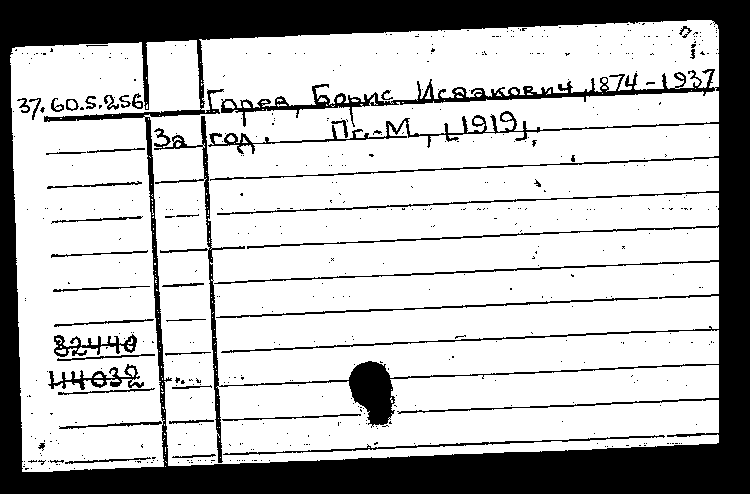 37.60.5.256 Горев, Борис Исаакович, 1874-1937
За год. Пг.-М., [1919].
32440
114032